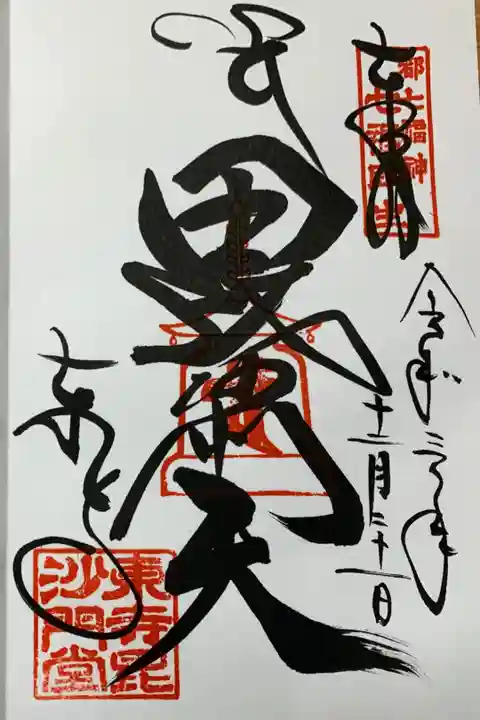 奉拝
都七福神
七福即生
令和三年
十二月二十一日
毘沙門天
東寺
東寺毘
沙門堂